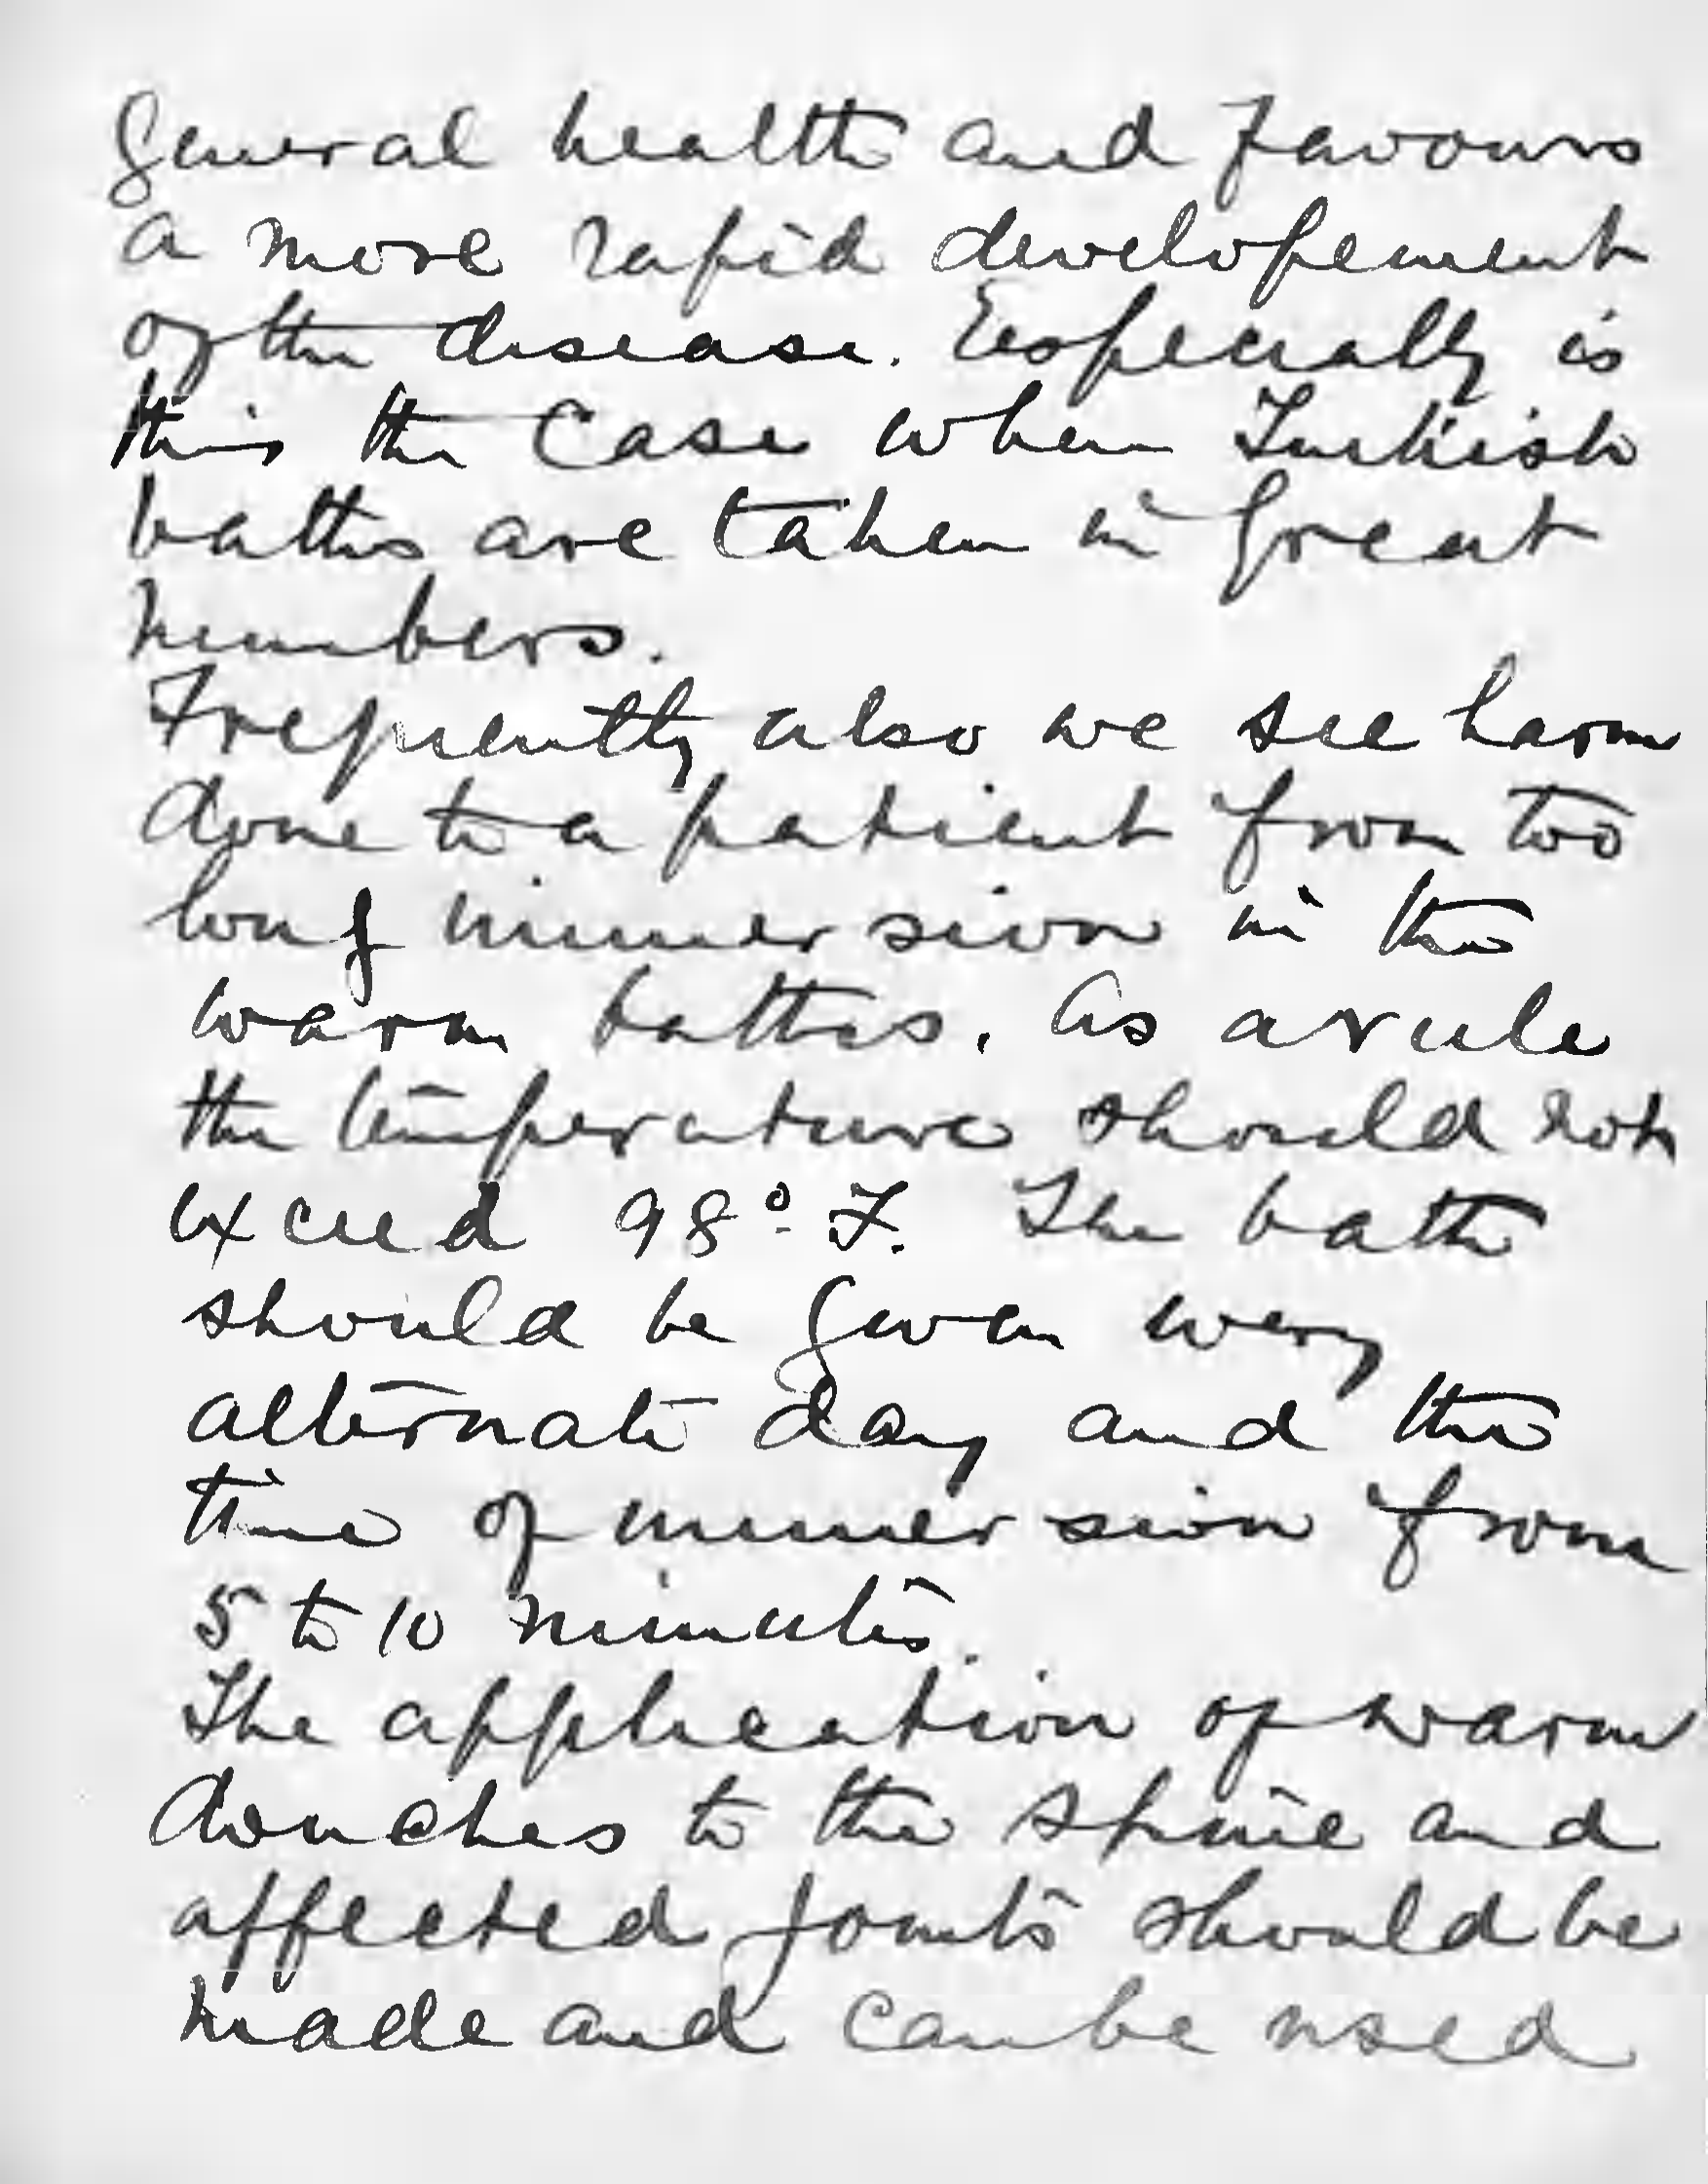 general health and favours
a more rapid developement
of the disease. Especially is
this the case when Turkish
baths are taken in great
numbers.
Frequently also we see harm
done to a patient from too
long immersion in the
warm baths. As a rule
the temperature should not
exceed 98° F. The bath
should be given every
alternate day and the
time of immersion from
5 to 10 minutes.
The application of warm
douches to the spine and
affected joints should be
made and can be used